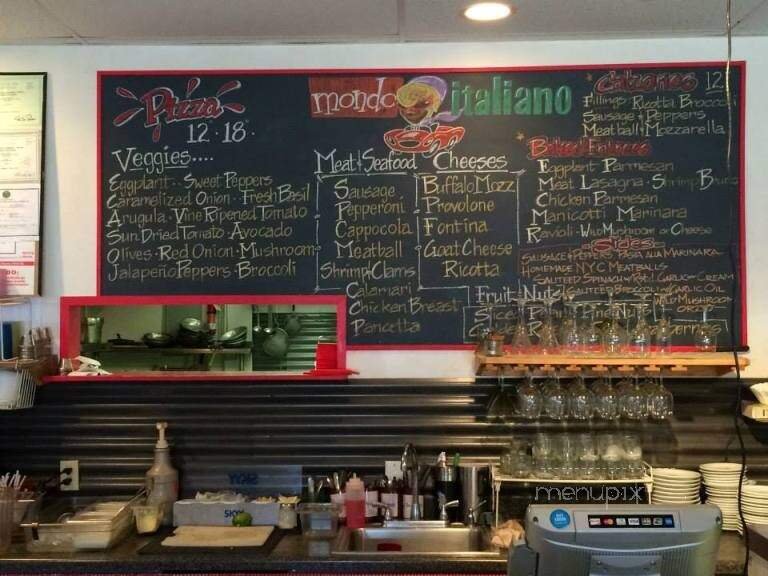 Pizza
12 · 18 ·
Veggies....
Eggplant · Sweet Peppers
Caramelized Onion · Fresh Basil
Arugula · Vine Ripened Tomato
Sun Dried Tomato · Avocado
Olives · Red Onion · Mushroom
Jalapeño Peppers · Broccoli
mondo italiano
Meat & Seafood
Sausage
Pepperoni
Cappocola
Meatball
Shrimp & Clams
Calamari
Chicken Breast
Pancetta
Cheeses
Buffalo Mozz
Provolone
Fontina
Goat Cheese
Ricotta
Fruit Nuts
Pine Nuts
Calzones 12
Fillings · Ricotta Broccoli
Sausage & Peppers
Meatball · Mozzarella
Baked
Eggplant Parmesan
Meat Lasagna · Shrimp
Chicken Parmesan
Manicotti Marinara
Ravioli · Wild Mushroom or Cheese
Sides
Sausage & Peppers Pasta alla Marinara
Homemade NYC Meatballs
Sauteed Spinach Garlic or Cream
Sauteed Broccoli Garlic Oil
Wild Mushroom
SKYY
menupix